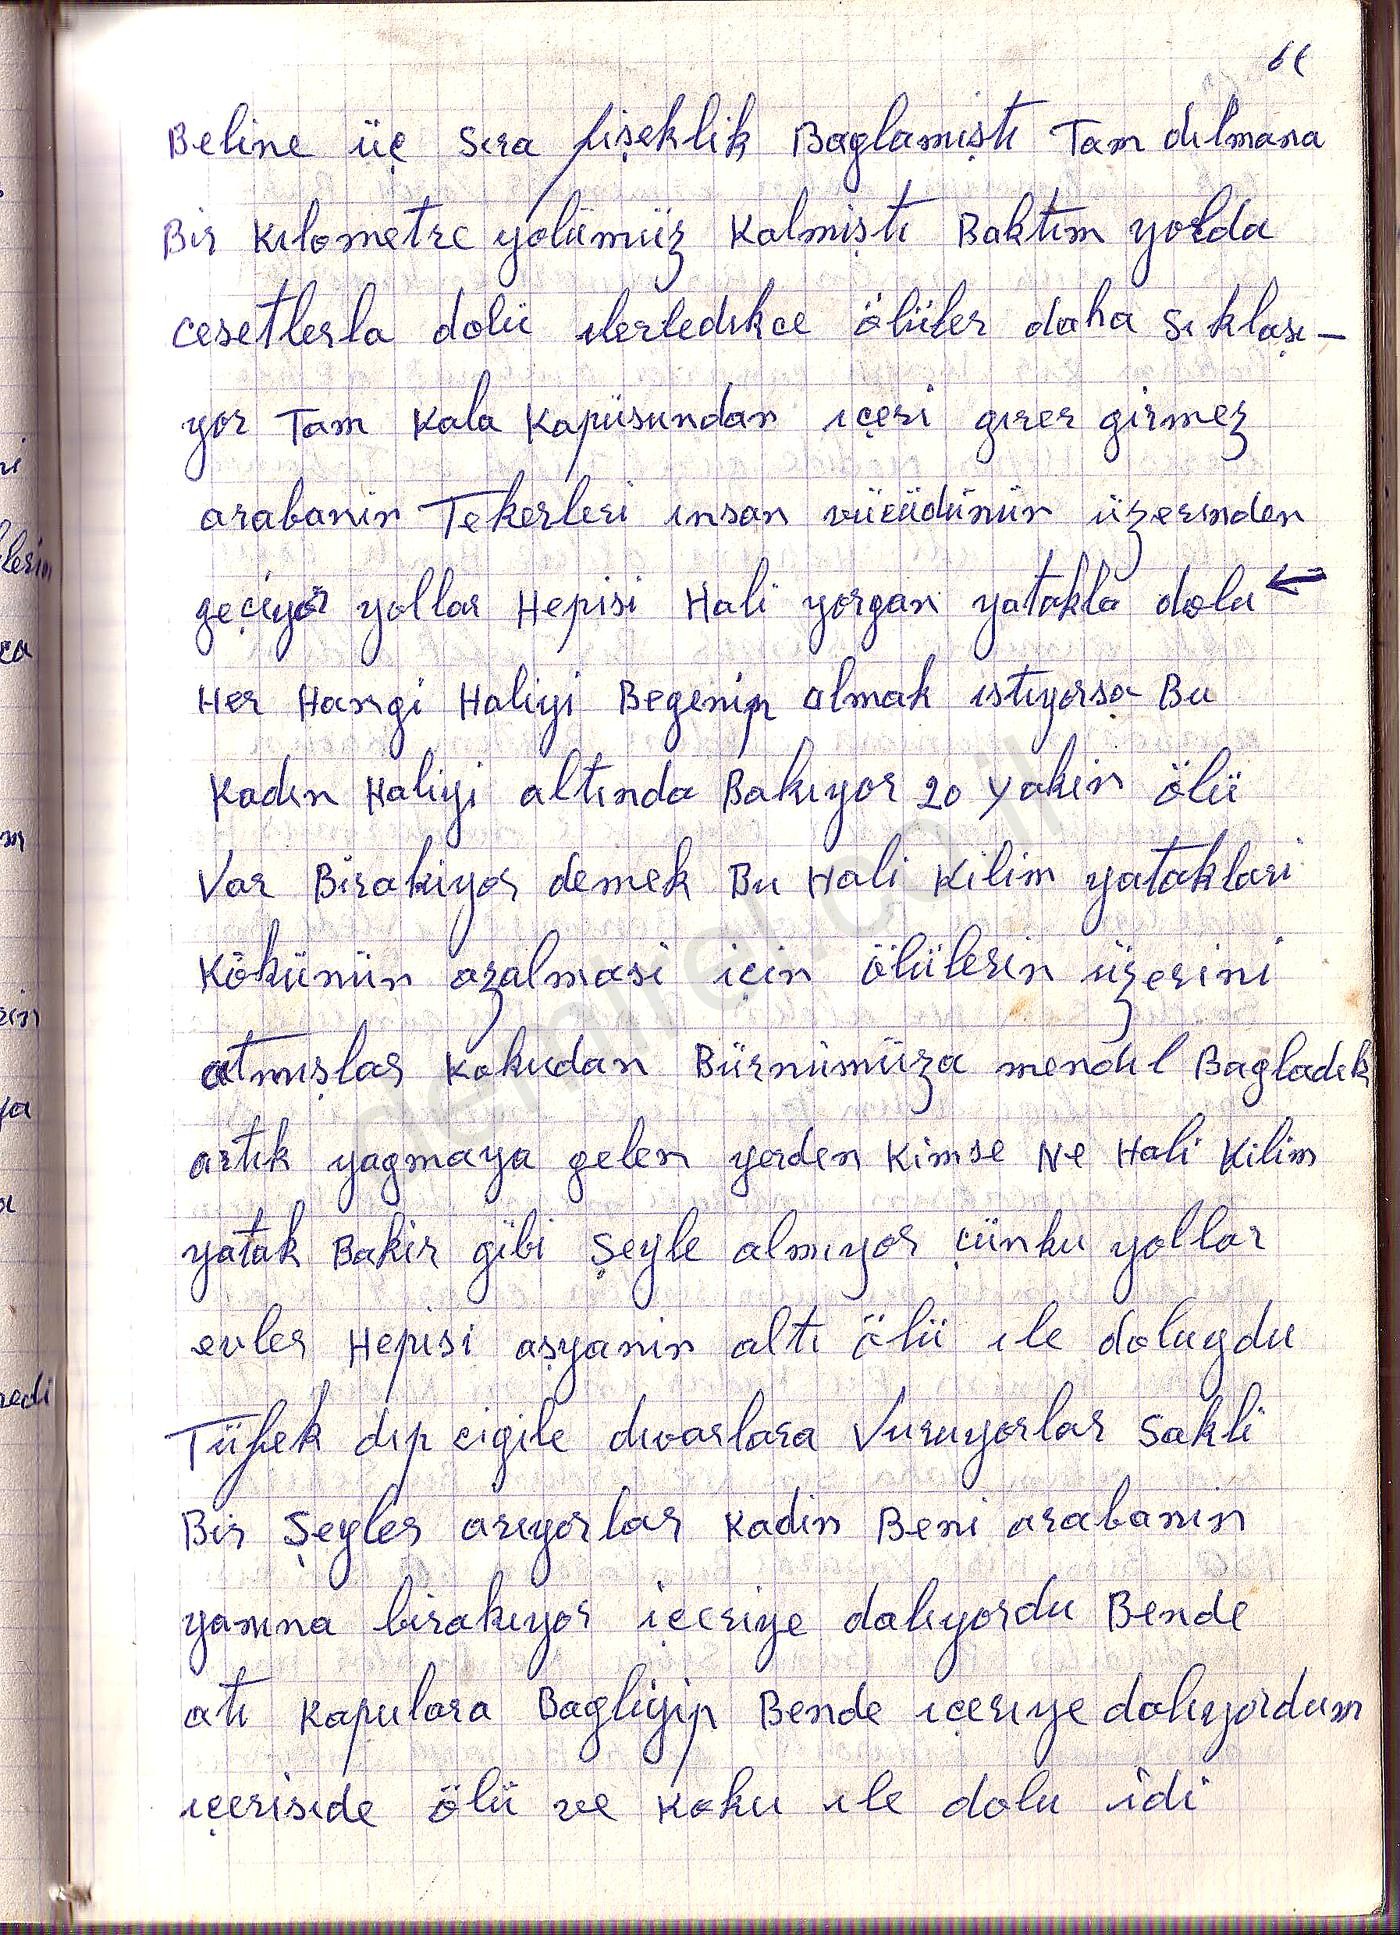 66
Beline üç Sıra fişeklik Baglamiştı Tam dılmana
Bir Kılometre yolümüz Kalmiştı Baktım yolda
cesetlerla dolü ılerledıkce ölüler daha sıklaşı-
yor Tam Kala Kapüsundan ıçeri gırer girmez
arabanin Tekerleri ınsan vücüdünün üzerınden
geçiyor yollar Hepisi Hali yorgan yatakla dolu ←
Her Hangi Haliyi Begenip almak ıstıyorsa Bu
Kadın Haliyi altında Bakıyor 20 yakin ölü
Var Birakiyor demek Bu Hali Kilim yataklari
Kökünün azalmasi için ölülerin üzerini
atmışlar Kokudan Bürnümüza mendıl Bagladık
artık yagmaya gelen yerden Kimse Ne Hali Kilim
yatak Bakir gibi Şeyle almıyor çünku yollar
evler Hepisi aşyanin altı ölü ıle dolugdu
Tüfek dıp cigile dıvarlara Vuruyorlar Sakli
Bir Şeyler arıyorlar Kadin Beni arabanin
yanına birakıyor içeriye dalıyordu Bende
atı Kapulara Bagliyip Bende ıçerıye dalıyordum
ıçeriside ölü ve Koku ıle dolu idi
demirel.co.il